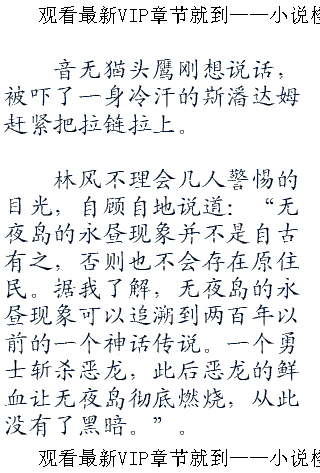 观看最新VIP章节就到——小说
音无猫头鹰刚想说话，
被吓了一身冷汗的斯潘达姆
赶紧把拉链拉上。
林风不理会几人警惕的
目光，自顾自地说道：“无
夜岛的永昼现象并不是自古
有之，否则也不会存在原住
民。据我了解，无夜岛的永
昼现象可以追溯到两百年以
前的一个神话传说。一个勇
士斩杀恶龙，此后恶龙的鲜
血让无夜岛彻底燃烧，从此
没有了黑暗。”。
观看最新VIP章节就到——小说